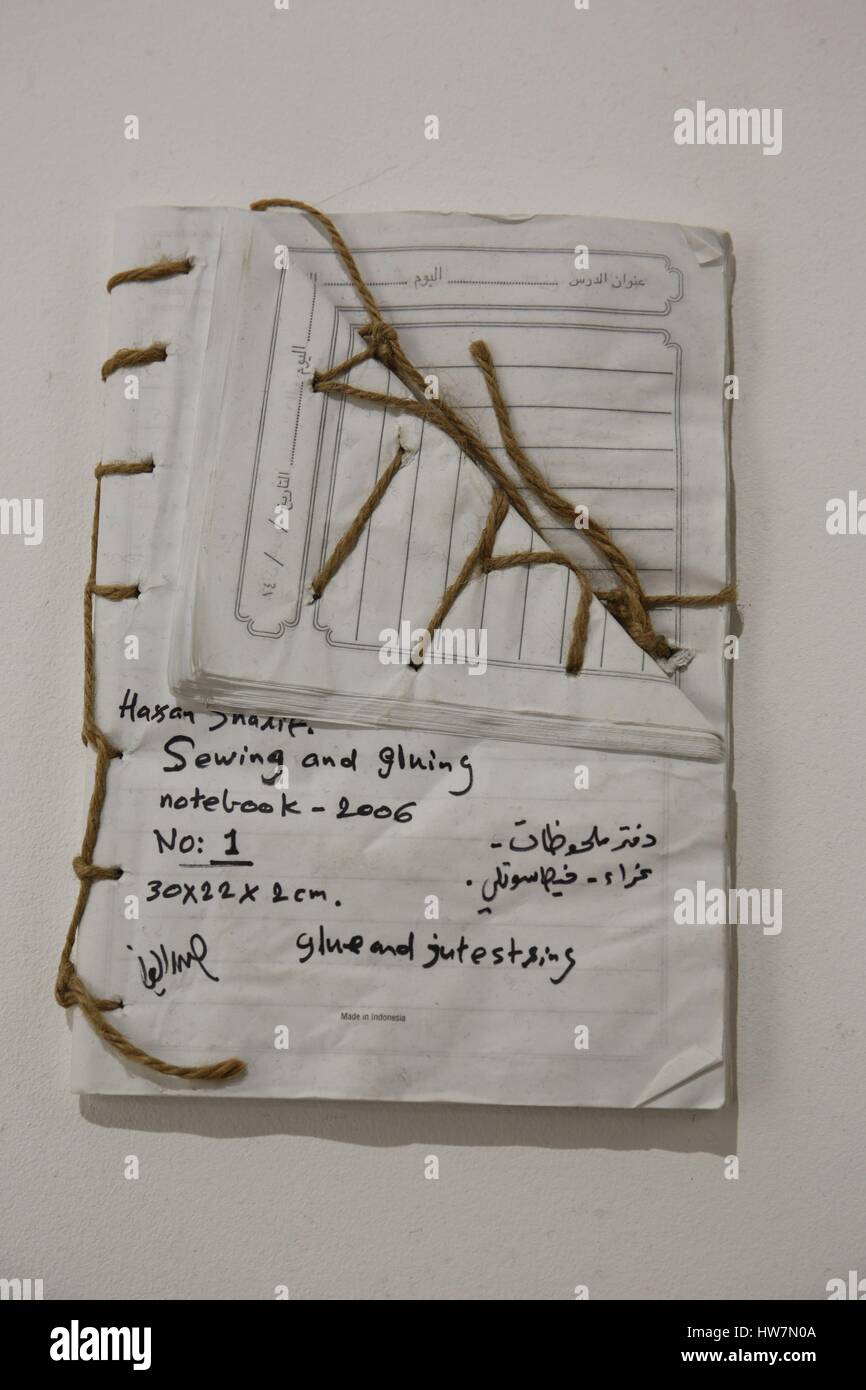 عنوان الدرس ........ اليوم ........
اليوم ........ التاريخ / / ١٤٠
Hassan Sharif.
Sewing and gluing
notebook - 2006
No: 1
30x22x2cm.
دفتر ملحوظات -
غراء - خيط سوتلي .
glue and jute string
Made in Indonesia
alamy
Image ID: HW7N0A
www.alamy.com